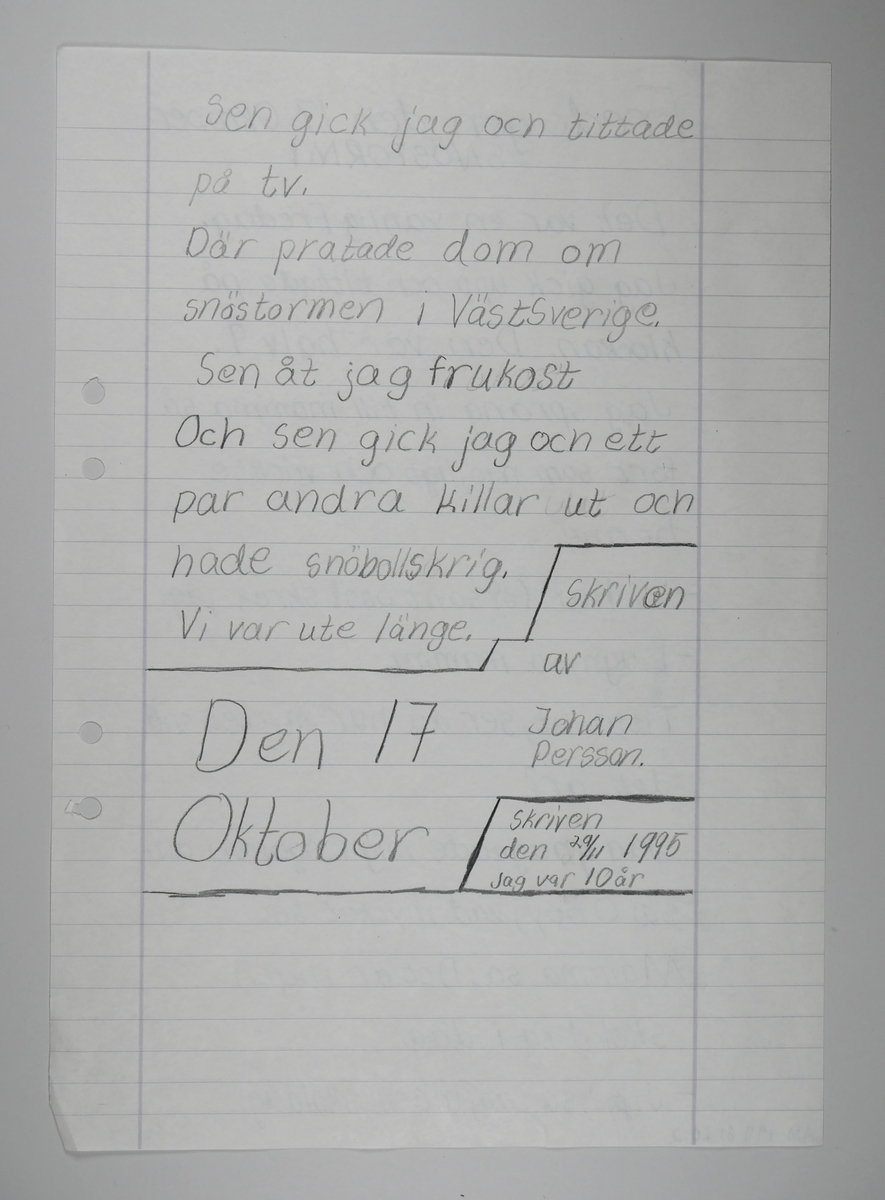 Sen gick jag och tittade
på tv.
Där pratade dom om
snöstormen i VästSverige.
Sen åt jag frukost
Och sen gick jag och ett
par andra killar ut och
hade snöbollskrig.
Vi var ute länge.
Skriven
av
Johan
Persson.
Den 17
Oktober
Skriven
den 29/11 1995
Jag var 10 år